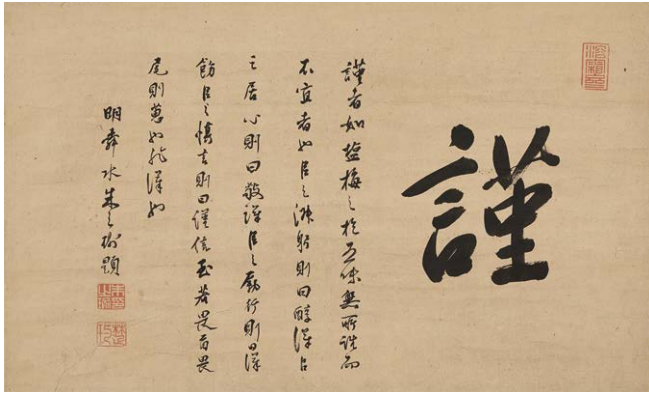 謹
謹者如塩梅之於五味無所而
不宜者也臣之躬則曰醇謹臣
之居心則曰敬謹臣之勵行則曰謹
飭臣之慎言則曰謹信至若畏首畏
尾則葸也非謹也
明舜水朱之瑜題